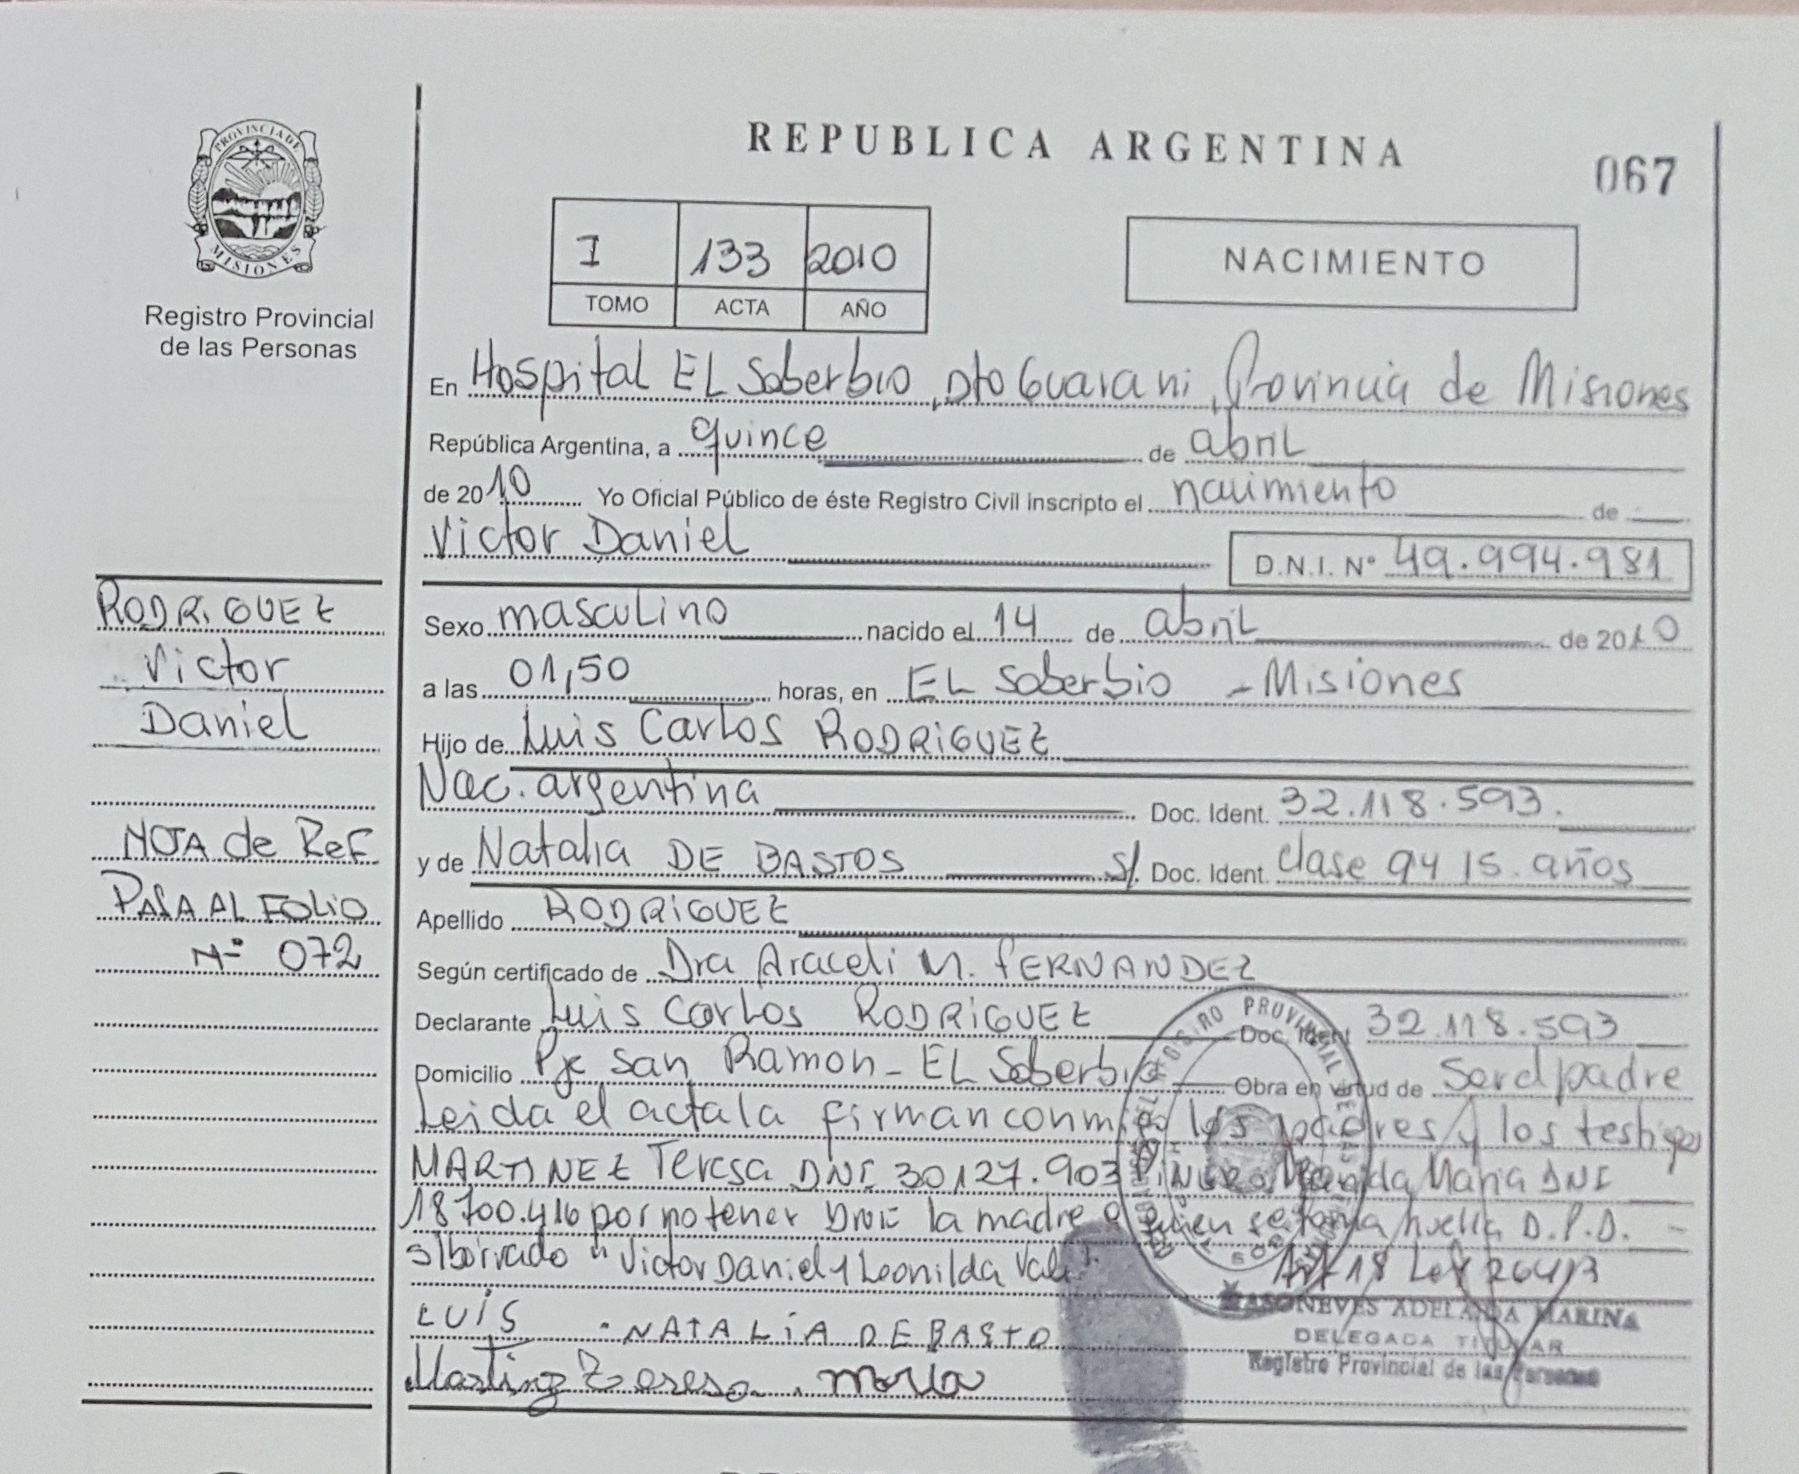 REPUBLICA ARGENTINA
067
PROVINCIA DE MISIONES
Registro Provincial
de las Personas
I 133 2010
TOMO ACTA AÑO
NACIMIENTO
En Hospital EL Soberbio, Dto Guarani, Provincia de Misiones
República Argentina, a quince de abril
de 2010 Yo Oficial Público de éste Registro Civil inscripto el nacimiento de
Victor Daniel D.N.I. Nº 49.994.981
Sexo masculino nacido el 14 de abril de 2010
a las 01,50 horas, en EL Soberbio - Misiones
Hijo de Luis Carlos RODRIGUEZ
Nac. argentina Doc. Ident. 32.118.593.
y de Natalia DE BASTOS s/. Doc. Ident. clase 94 15 años
Apellido RODRIGUEZ
Según certificado de Dra Araceli M. FERNANDEZ
Declarante Luis Carlos RODRIGUEZ Doc. Ident 32.118.593
Domicilio Pje San Ramon - EL Soberbio Obra en virtud de Ser el padre
Leida el acta la firman conmigo los padres y los testigos
MARTINEZ Teresa DNI 30127.903 Maria DNI
18700.416 por no tener DNI la madre a quien se toma huella D.P.D. -
s/borrado "Victor Daniel y Leonilda Vale".
Art 18 Ley 26413
LUIS . NATALIA DE BASTO
MARINA
DELEGADA TITULAR
Registro Provincial de las Personas
RODRIGUEZ
Victor
Daniel
NOTA de Ref
PASA AL FOLIO
Nº 072